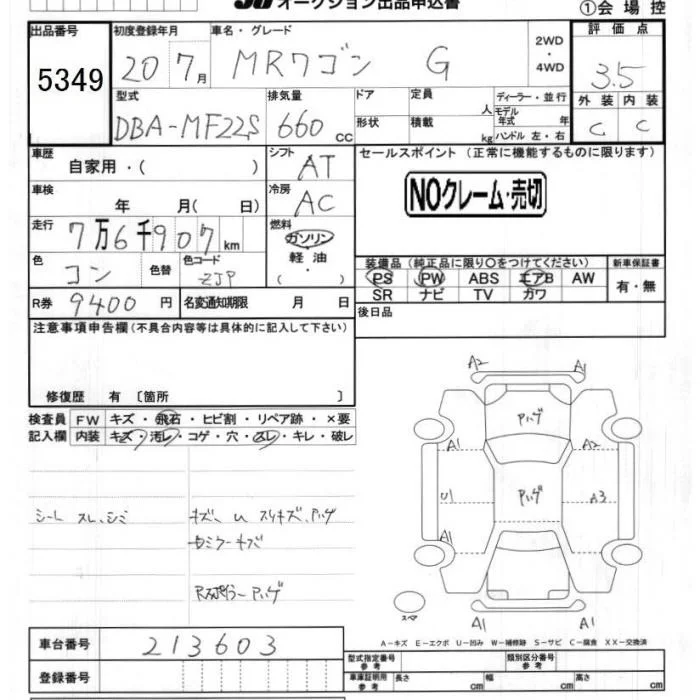 JU オークション出品申込書
①会場控
出品番号 初度登録年月 車名・グレード 2WD ・ 4WD 評価点
5349 20 7月 MRワゴン G 3.5
型式 排気量 ドア 定員 人 ディーラー・並行 外装 内装
DBA-MF22S 660 cc 形状 積載 kg モデル年式 年 ハンドル 左・右 C C
車歴 自家用・( ) シフト AT セールスポイント (正常に機能するものに限ります)
車検 年 月( 日) 冷房 AC NOクレーム・売切
走行 7万6千907km 燃料 ガソリン 軽油
装備品 (純正品に限り○をつけてください) 新車保証書
色 コン 色替 色コード ZJP PS PW ABS エアB AW 有・無
SR ナビ TV カワ
R券 9400円 名変通知期限 月 日 後日品
注意事項申告欄 (不具合内容等は具体的に記入して下さい)
修復歴 有 〔箇所 〕
検査員 FW キズ・飛石・ヒビ割・リペア跡・×要
記入欄 内装 キズ・汚レ・コゲ・穴・スレ・キレ・破レ
シート スレ、シミ
キズ、U スリキズ、ハゲ
A2 A1
Aハゲ
A1 A2
U1 Aハゲ A3
A1
スペア A1 A1
A-キズ E-エクボ U-凹み W-補修跡 S-サビ C-腐食 XX-交換済
車台番号 213603
型式指定番号 参考 類別区分番号 参考
登録番号 車庫証明用 参考 長さ cm 幅 cm 高さ cm